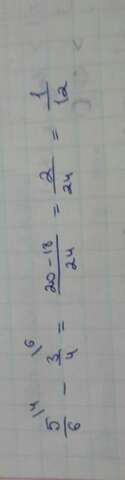 5/6 /4 - 3/4 /6 = 20-18/24 = 2/24 = 1/12